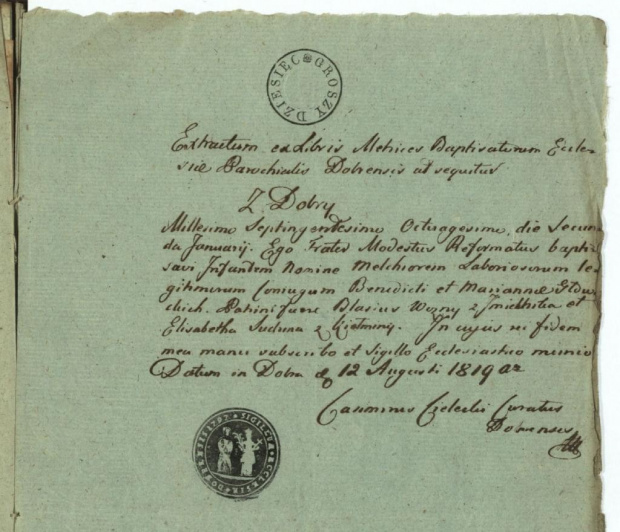 DZIESIĘC GROSZY
Extractum ex Libris Metrices Baptisatorum Eccle-
siæ Parochialis Dobrensis ut sequitur
Z Dobry
Millesimo Septingentesimo Octuagesimo, die Secun-
da Januarij. Ego Frater Modestus Reformatus bapti-
savi Infantem Nomine Melchiorem Laboriosorum le-
gitimorum Coniugum Benedicti et Mariannæ
Patrini fuere Blasius Woyny z et
Elisabetha Suduna z In cujus rei fidem
mea manu subscribo et Sigillo Ecclesiastico munio
Datum in Dobra d 12 Augusti 1819 ar
Casimirus Curatus
Dobrensis